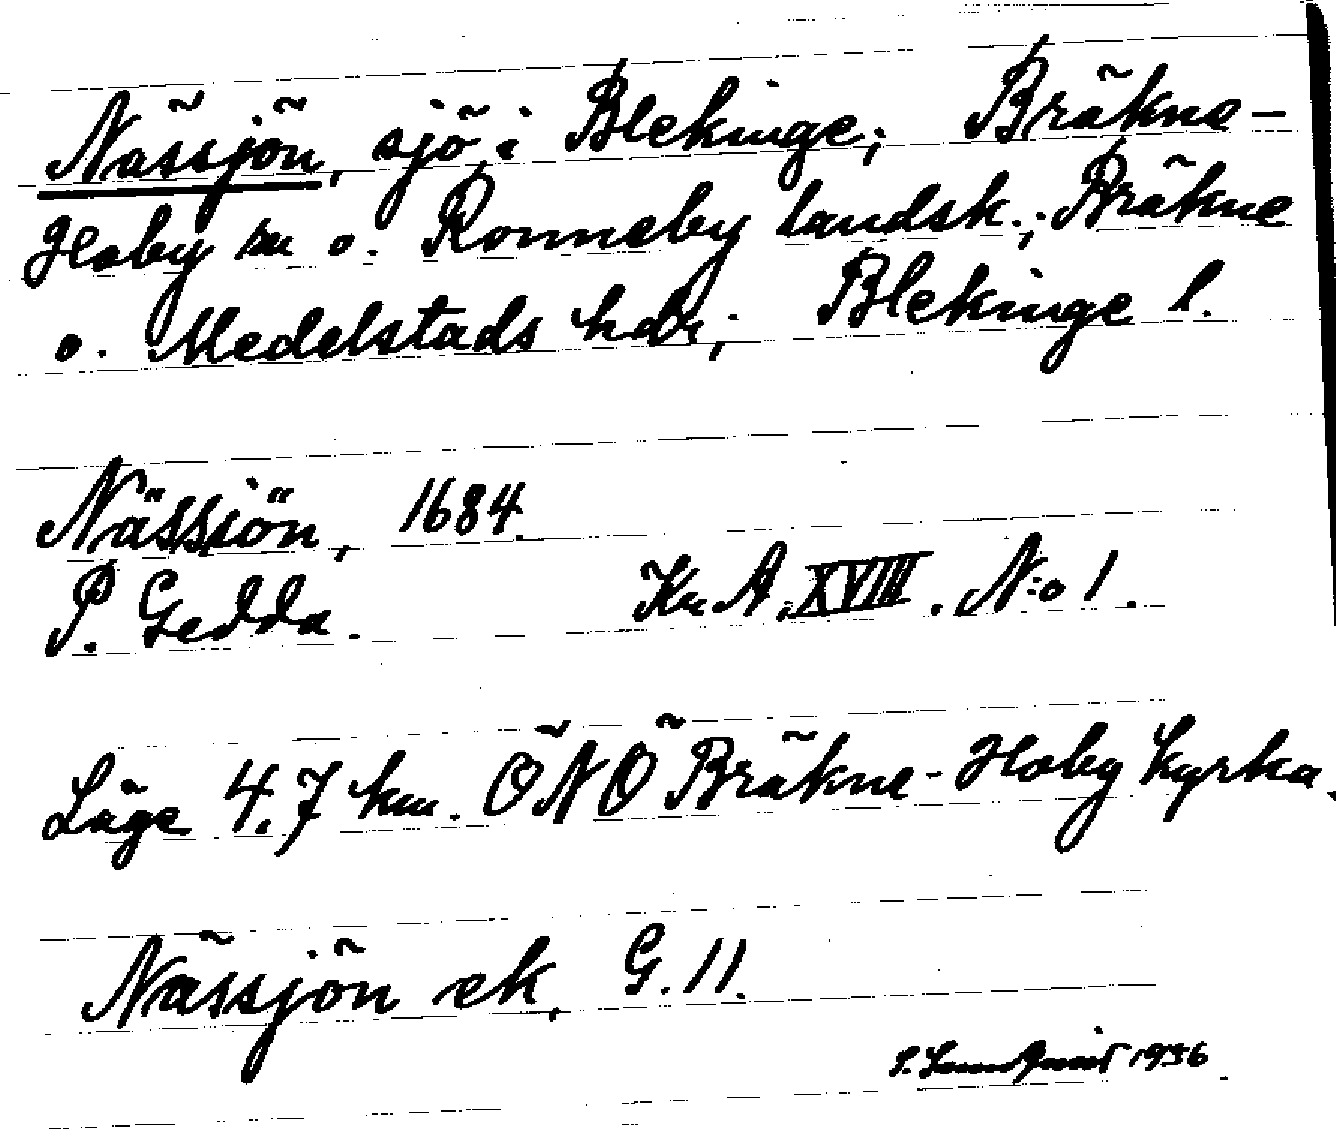 Nässjön, sjö, i Blekinge; Bräkne-
Hoby sn o. Ronneby landsk.; Bräkne
o. Medelstads hdr; Blekinge l.
Nässiön, 1684.
P. Gedda. Kr. A. XVIII. N:o 1.
Läge 4.7 km. ÖNÖ Bräkne-Hoby kyrka.
Nässjön ek. G. 11.
1936